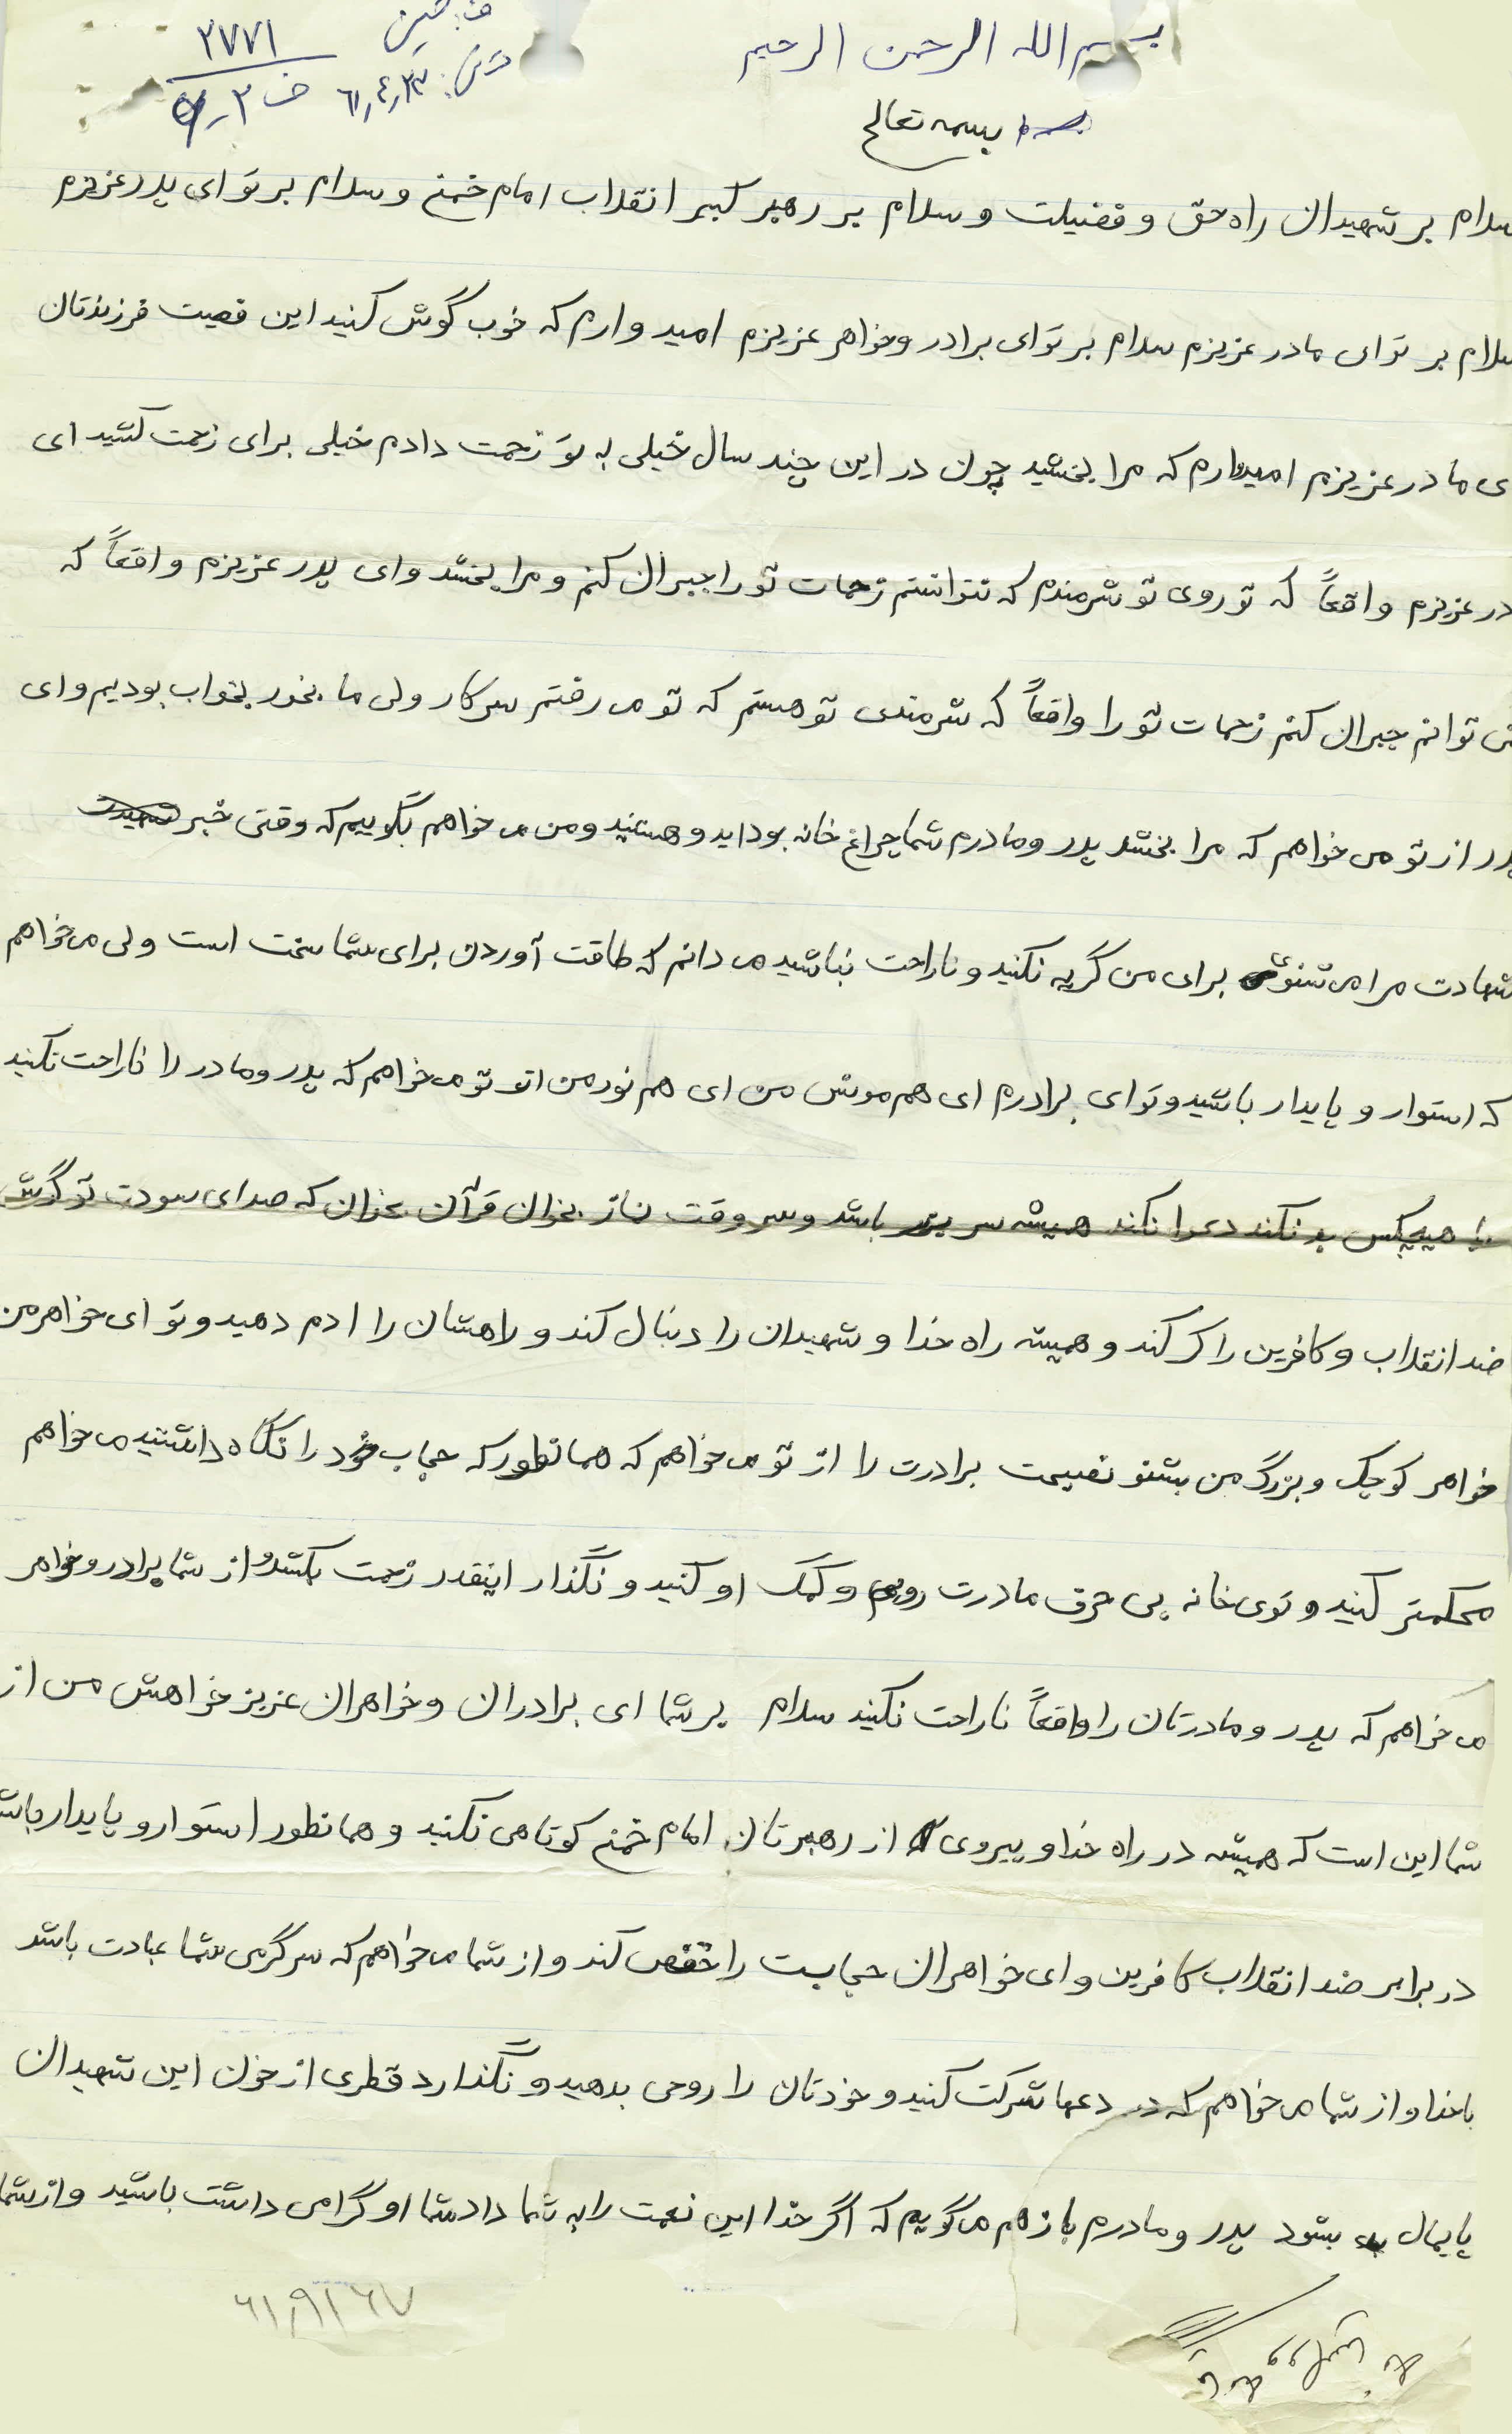 بسم الله الرحمن الرحیم
۲۷۷۱
ف ۲
۶۱٫۴٫۲۳
بسمه تعالی
سلام بر شهیدان راه حق و فضیلت و سلام بر رهبر کبیر انقلاب امام خمنی و سلام بر تو ای پدر عزیزم
سلام بر تو ای مادر عزیزم سلام بر تو ای برادر و خواهر عزیزم امیدوارم که خوب گوش کنید این وصیت فرزندتان
ی مادر عزیزم امیدوارم که مرا بخشید چون در این چند سال خیلی به تو زحمت دادم خیلی برای زحمت کشید ای
در عزیزم واقعاً که تو روی تو شرمندم که نتوانستم زحمات تو را جبران کنم و مرا بخشد و ای پدر عزیزم واقعاً که
نمی توانم جبران کنم زحمات تو را واقعاً که شرمندی تو هستم که تو می رفتم سر کار ولی ما بخور بخواب بودیم و ای
پدر از تو می خواهم که مرا بخشد پدر و مادرم شما چراغ خانه بوداید و هستید و من می خواهم بگوییم که وقتی خبر
شهادت مرا می شنوی برای من گریه نکنید و ناراحت نباشید می دانم که طاقت آوردن برای شما سخت است ولی می خواهم
که استوار و پایدار باشید و تو ای برادرم ای هم مونس من ای هم نور من از تو می خواهم که پدر و مادر را ناراحت نکنید
با هیچکس بد نکند دعوا نکند همیشه سر بزیر باشد و سر وقت نماز بخوان قرآن بخوان که صدای سودت تو گوش
ضد انقلاب و کافرین را کر کند و همیشه راه خدا و شهیدان را دنبال کند و راهشان را ادم دهید و تو ای خواهر من
خواهر کوچک و بزرگ من بشنو نصیحت برادرت را از تو می خواهم که همانطور که حجاب خود را نگاه داشتید می خواهم
محکمتر کنید و توی خانه پی حرف مادرت روید و کمک او کنید و نگذار اینقدر زحمت بکشد و از شما برادر و خواهر
می خواهم که پدر و مادرتان را واقعاً ناراحت نکنید سلام بر شما ای برادران و خواهران عزیز خواهش من از
شما این است که همیشه در راه خدا و پیروی از رهبرتان امام خمنی کوتاهی نکنید و همانطور استوار و پایدار باش
در برابر ضد انقلاب کافرین و ای خواهران حجابت را حفض کند و از شما می خواهم که سرگرمی شما عبادت باشد
با خدا و از شما می خواهم که در دعها شرکت کنید و خودتان را روحی بدهید و نگذارد قطری از خون این شهیدان
پایمال بشود پدر و مادرم باز هم می گویم که اگر خدا این نعمت را به شما داد شما او گرامی داشت باشید و از شما
۶۱٫۹٫۲۷